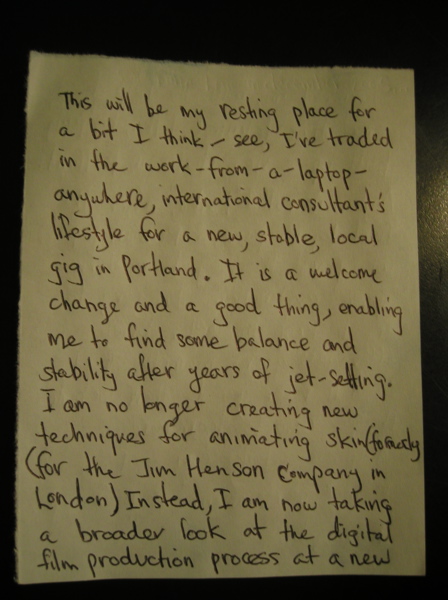 This will be my resting place for
a bit I think - see, I've traded
in the work-from-a-laptop-
anywhere, international consultant's
lifestyle for a new, stable, local
gig in Portland. It is a welcome
change and a good thing, enabling
me to find some balance and
stability after years of jet-setting.
I am no longer creating new
techniques for animating skin (formerly
(for the Jim Henson Company in
London) Instead, I am now taking
a broader look at the digital
film production process at a new